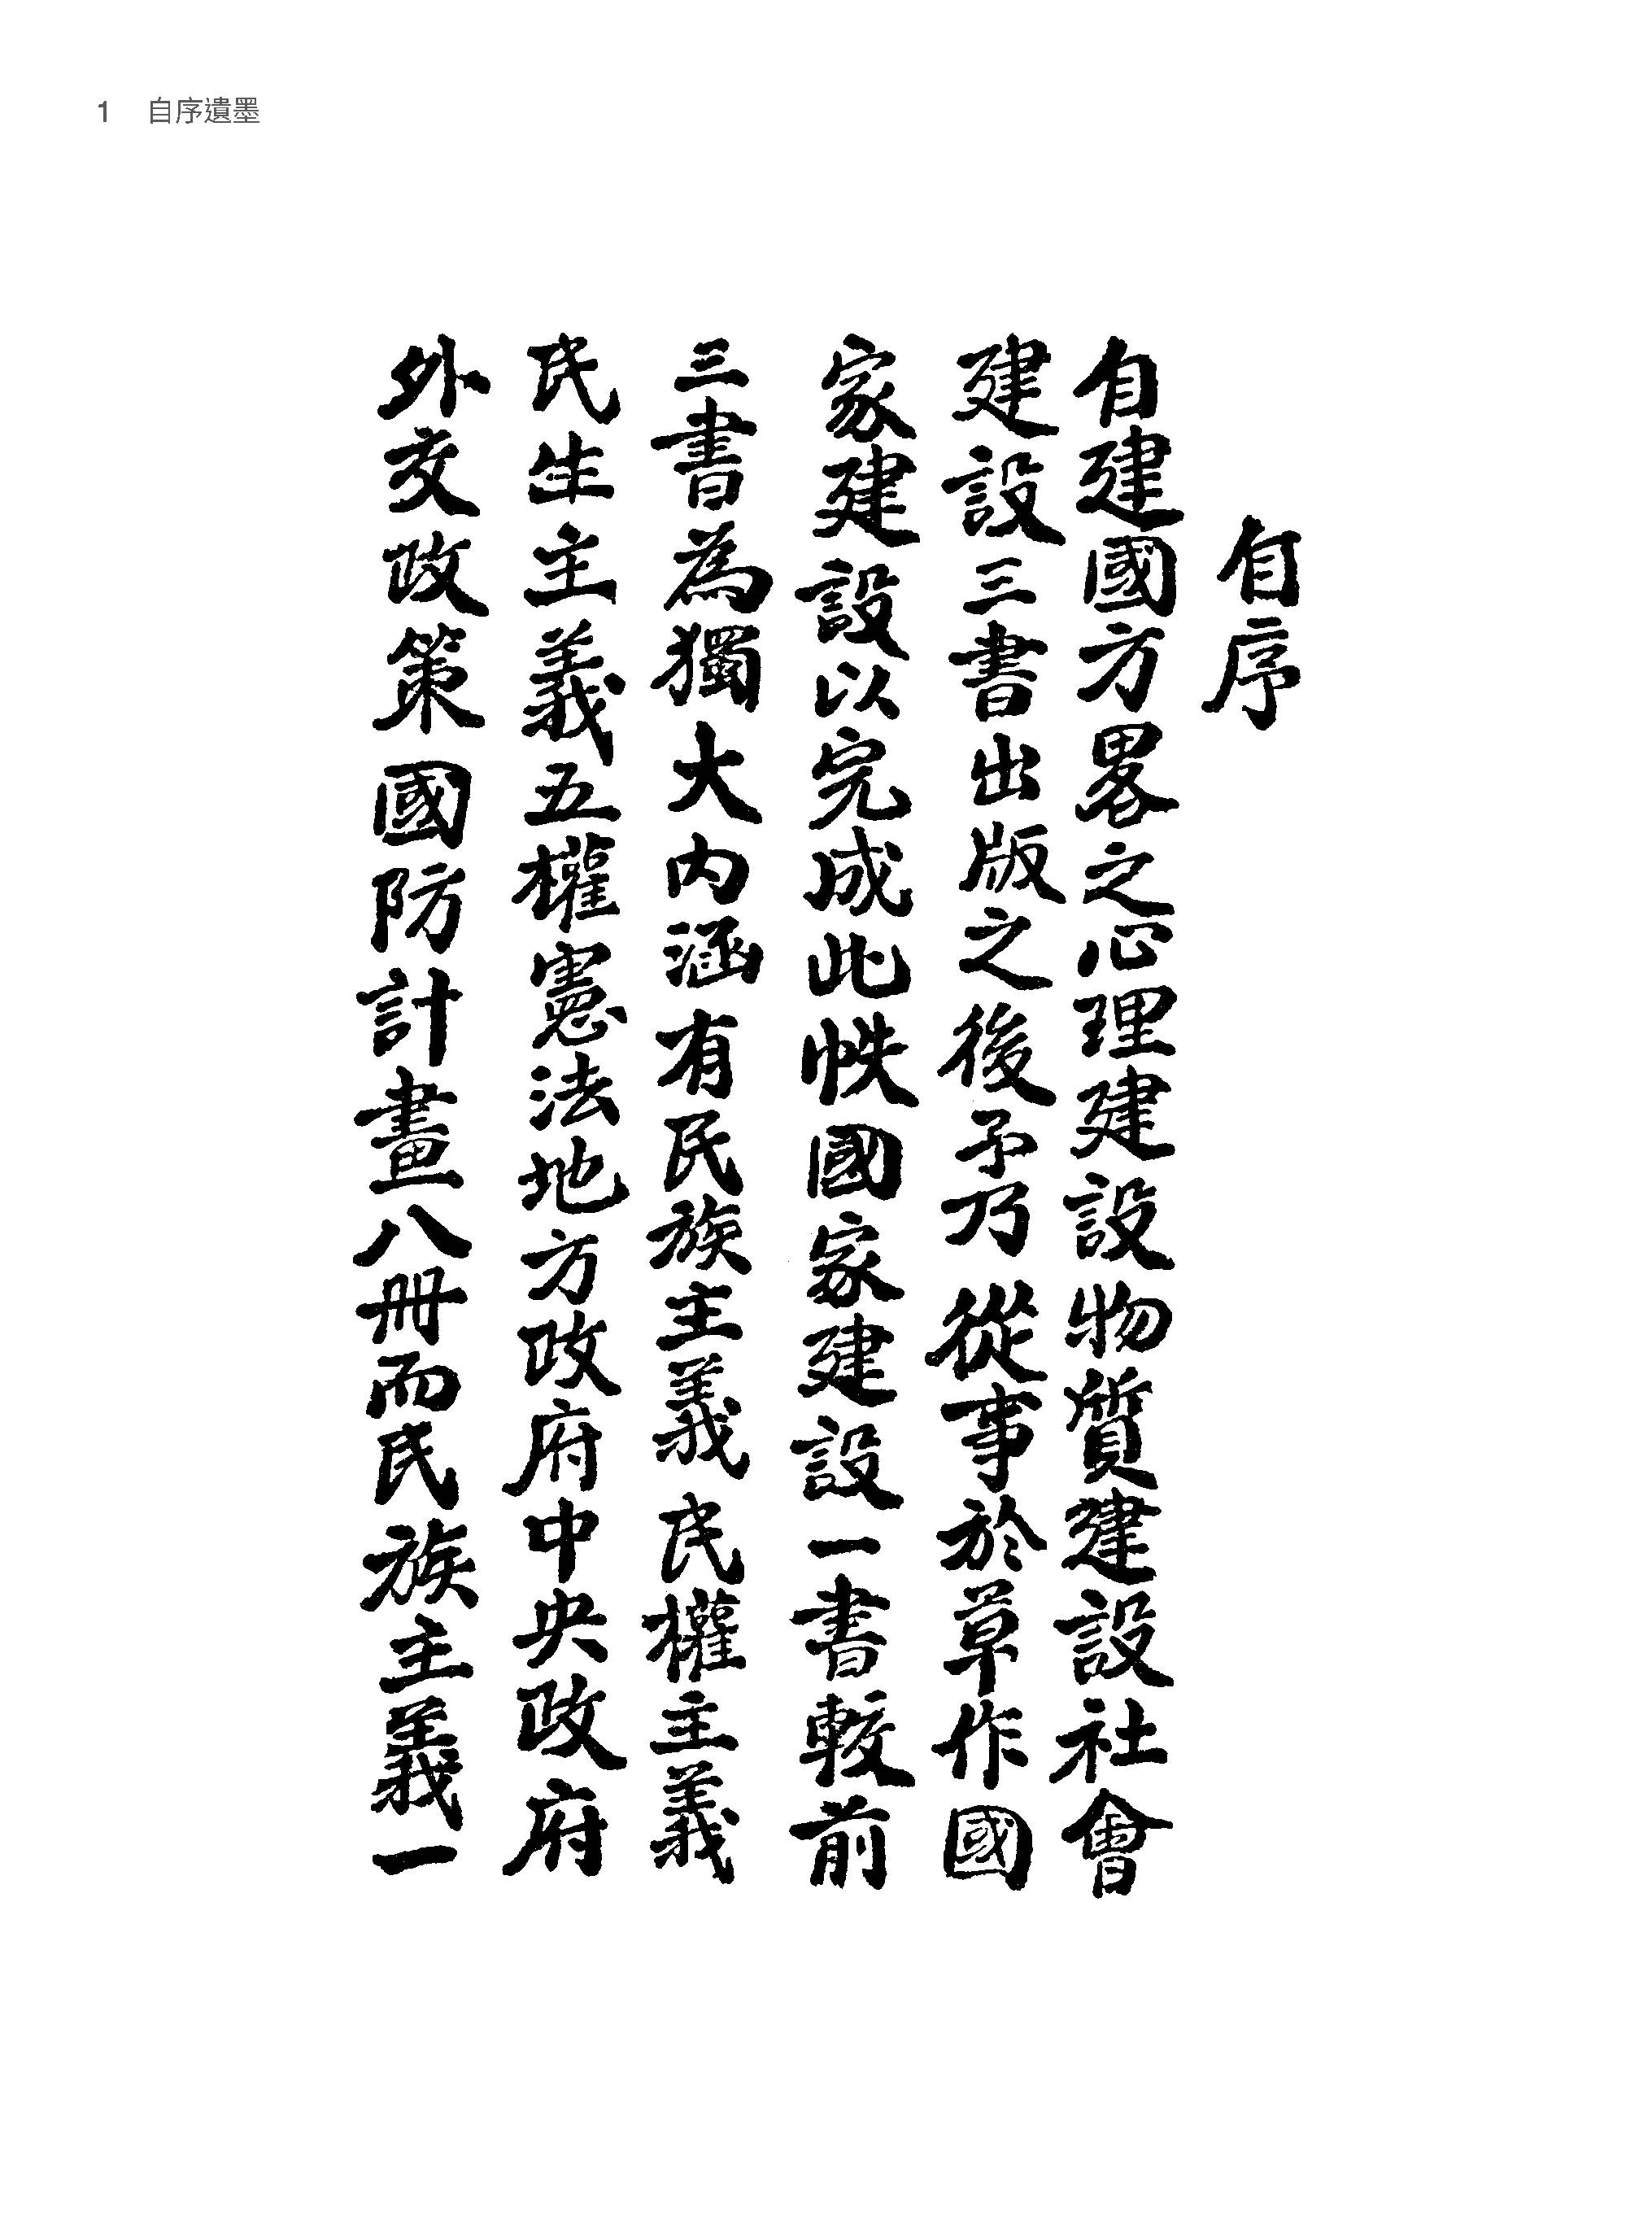 1 自序遺墨
自序
自建國方畧之心理建設物質建設社會
建設三書出版之後予乃從事於草作國
家建設以完成此帙國家建設一書較前
三書為獨大內涵有民族主義民權主義
民生主義五權憲法地方政府中央政府
外交政策國防計畫八冊而民族主義一